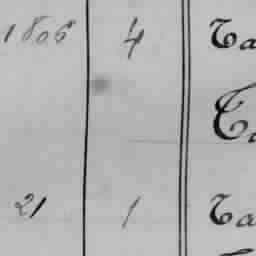 1806 4 Ta
Ta
21 1 Ta